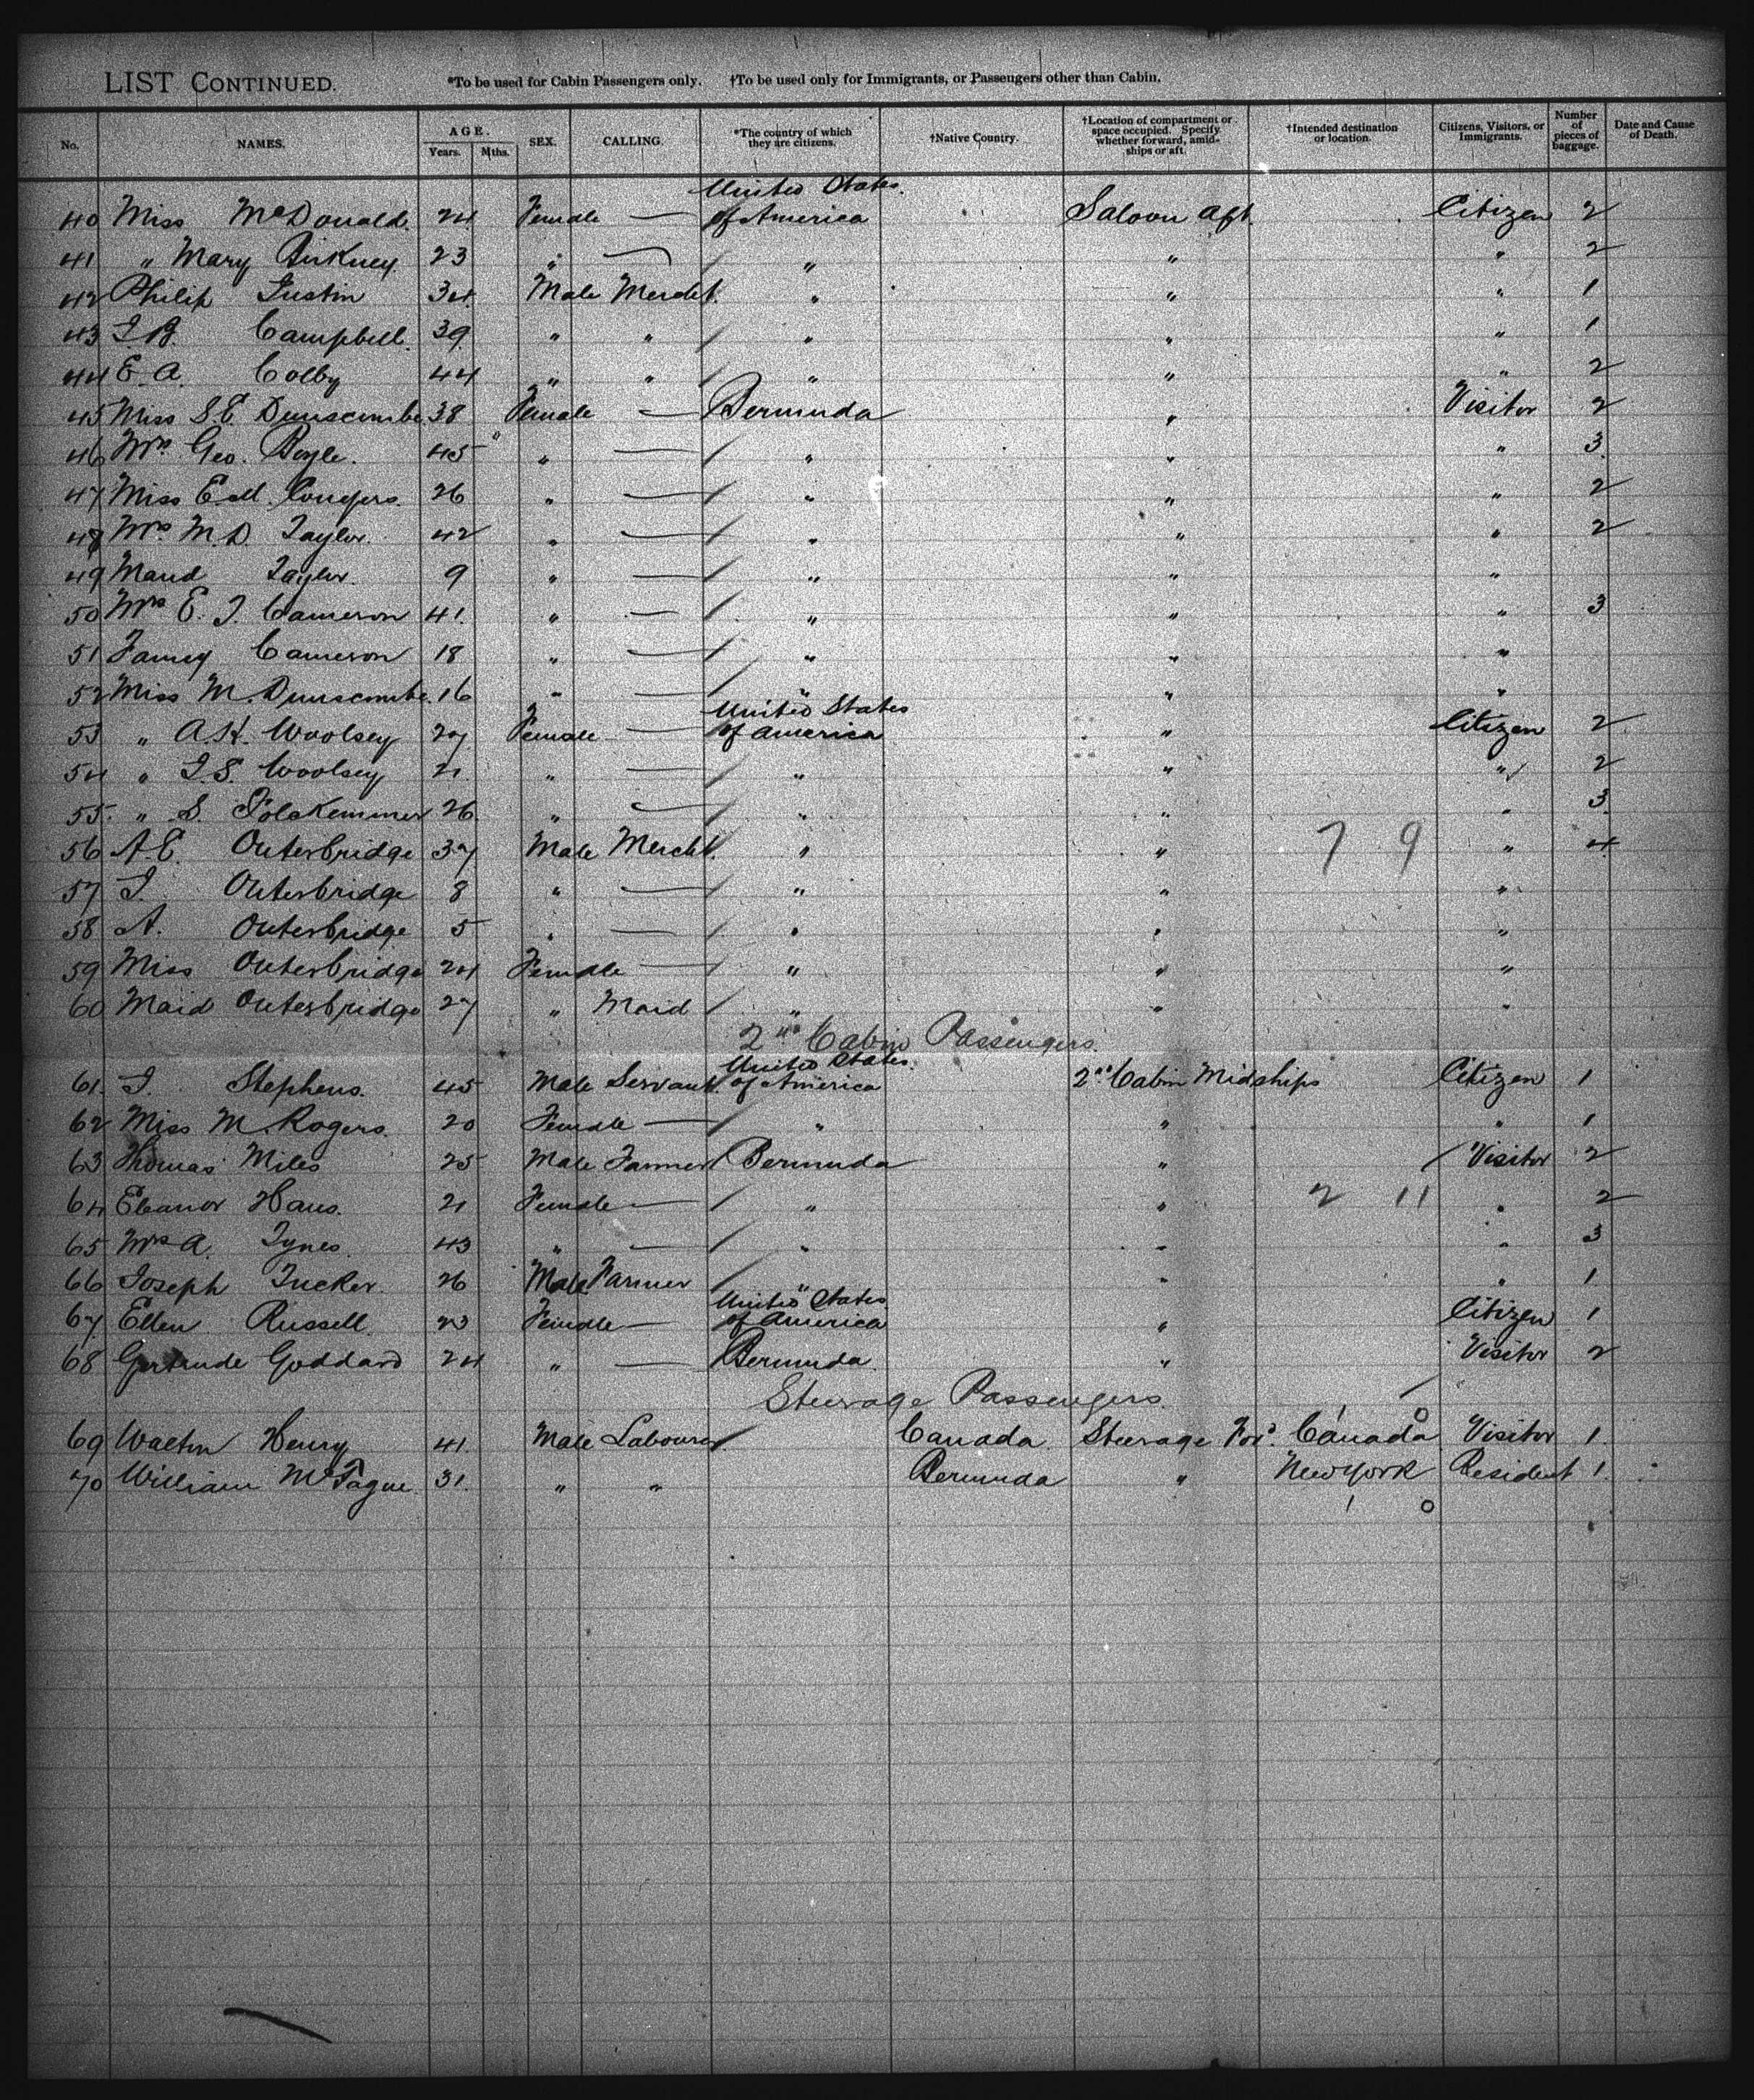 LIST CONTINUED. *To be used for Cabin Passengers only. †To be used only for Immigrants, or Passengers other than Cabin.
No. NAMES. AGE. Years. Mths. SEX. CALLING. *The country of which they are citizens. †Native Country. †Location of compartment or space occupied. Specify whether forward, amidships or aft. †Intended destination or location. Citizens, Visitors, or Immigrants. Number of pieces of baggage. Date and Cause of Death.
40 Miss McDonald. 24 Female — United States of America Saloon Aft. Citizen 2
41 " Mary 23 " — " " " 2
42 Philip Justin 34 Male Mercht. " " " 1
43 Campbell. 39 " " " " " 1
44 E. A. Colby 44 " " " " " 2
45 Miss S. E. Dunscombe 38 Female — Bermuda " Visitor 2
46 Mrs. Geo. Boyle. 45 " — " " " 3
47 Miss E. M. Conyers. 26 " — " " " 2
48 Mrs. M. D. Taylor. 42 " — " " " 2
49 Maud Taylor. 9 " — " " "
50 Mrs E. J. Cameron 41. " — " " " 3
51 Fanny Cameron 18 " — " " "
52 Miss M. Dunscombe. 16 " — " " "
53 " A. H. Woolsey 27 Female — United States of America " Citizen 2
54 " J. S. Woolsey 21 " — " " " 2
55. " S. 26 " — " " " 3
56 A. E. Outerbridge 37 Male Mercht. " " 7 9 " 4
57 J. Outerbridge 8 " — " " "
58 A. Outerbridge 5 " — " " "
59 Miss Outerbridge 24 Female — " " "
60 Maid Outerbridge 27 " Maid " " "
2nd Cabin Passengers.
61. J. Stephens. 45 Male Servant. United States of America 2nd Cabin Midships Citizen 1
62 Miss M. Rogers. 20 Female — " " " 1
63 Thomas Miles 25 Male Farmer Bermuda " Visitor 2
64 Eleanor 21 Female — " " 2 11 " 2
65 Mrs A. Tynes. 43 " — " " " 3
66 Joseph Tucker. 26 Male. Farmer " " " 1
67 Ellen Russell. 23 Female — United States of America " Citizen 1
68 Gertrude Goddard 24 " — Bermuda. " Visitor 2
Steerage Passengers.
1 0
69 Walter Henry 41. Male Labourer Canada. Steerage For'd. Canada Visitor 1.
70 William McTague. 31. " " Bermuda " New York Resident 1.
1 0